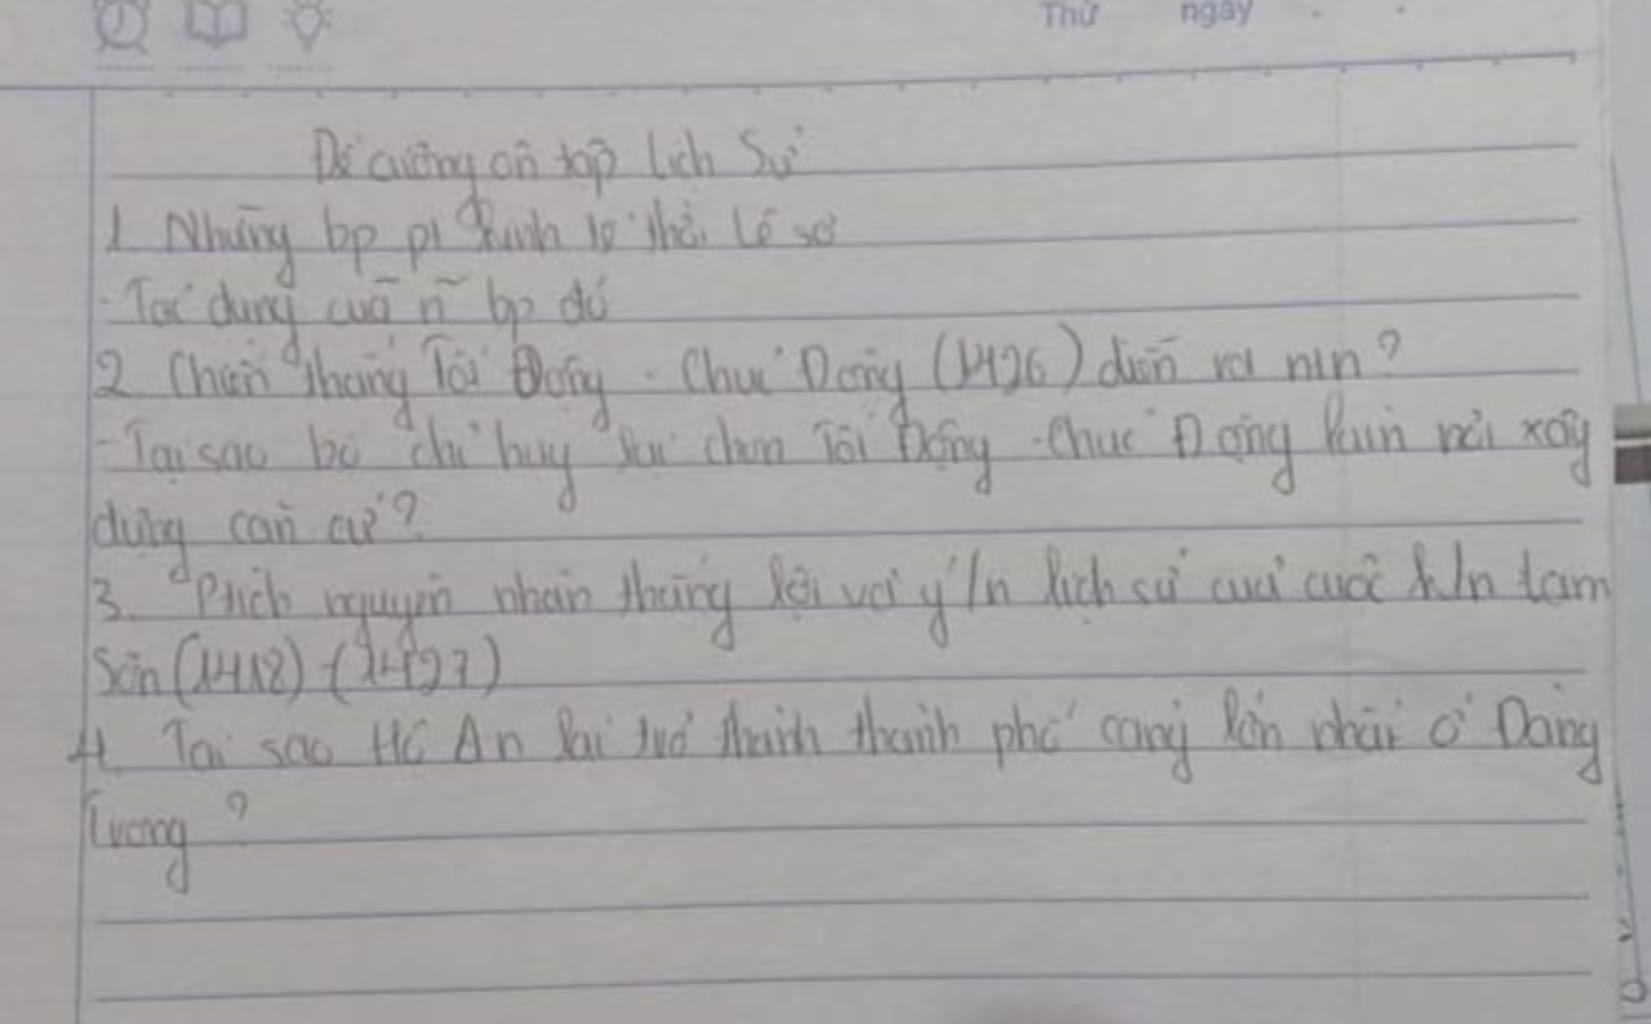 Thứ ngày
Đề cương ôn tập Lịch Sử
1. Những bp pt kinh tế thời Lê sơ
- Tác dụng của n~ bp đó
2. Chiến thắng Tốt Động - Chúc Động (1426) diễn ra ntn?
- Tại sao bộ chỉ huy lại chọn Tốt Động - Chúc Động làm nơi xây
dựng căn cứ?
3. Ptích nguyên nhân thắng lợi và ý/n lịch sử của cuộc k/n Lam
Sơn (1418) - (1427)
4. Tại sao Hội An lại trở thành thành phố cảng lớn nhất ở Đàng
Trong?